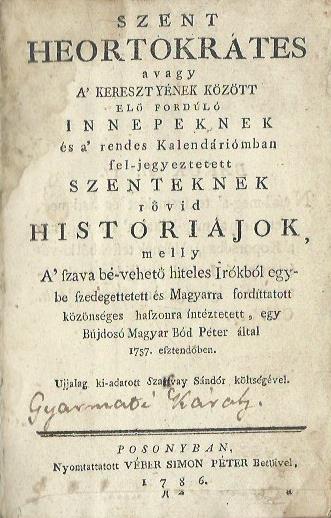 SZENT
HEORTOKRÁTES
avagy
A' KERESZTYÉNEK KÖZÖTT
ELŐ FORDÚLÓ
INNEPEKNEK
és a' rendes Kalendáriómban
fel-jegyeztetett
SZENTEKNEK
rövid
HISTÓRIÁJOK,
melly
A' szava bé-vehető hiteles Irókból egy-
be szedegettetett és Magyarra fordíttatott
közönséges haszonra intéztetett, egy
Bújdosó Magyar Bód Péter által
1757. esztendőben.
Ujjalag ki-adatott Szattvay Sándór költségével.
Gyarmati Károly.
POSONYBAN,
Nyomtattatott VÉBER SIMON PÉTER Betűivel,
1786.